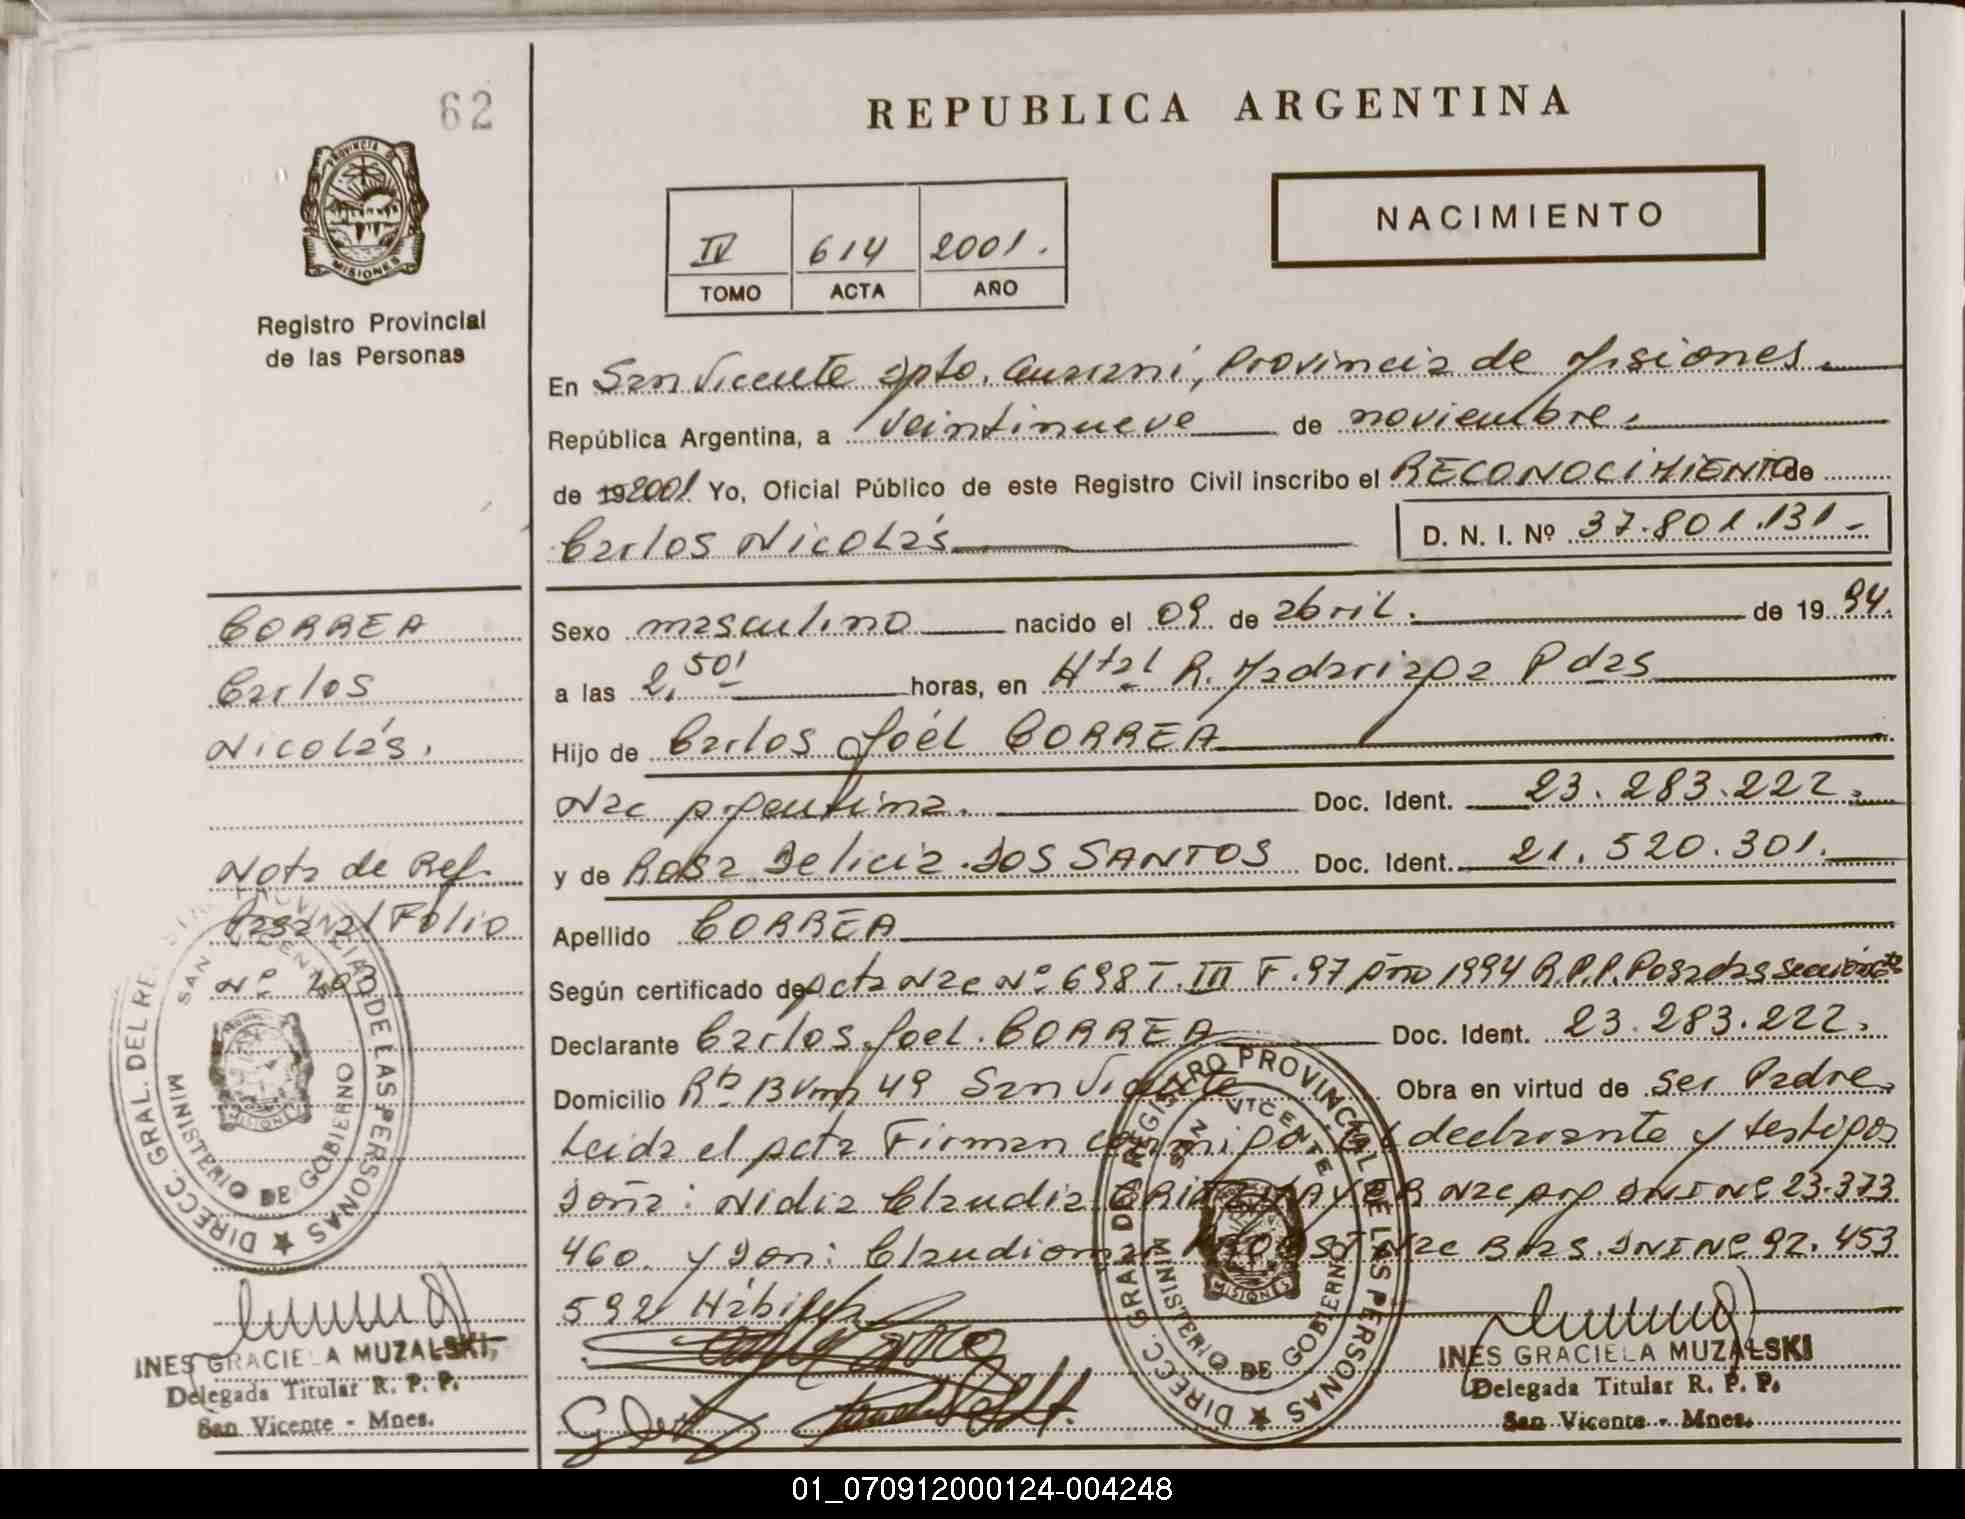 62
REPUBLICA ARGENTINA
PROVINCIA DE
MISIONES
Registro Provincial
de las Personas
IV 614 2001.
TOMO ACTA AÑO
NACIMIENTO
En San Vicente Dpto. Guaraní, Provincia de Misiones.
República Argentina, a veintinueve de noviembre.
de 19 2001 Yo, Oficial Público de este Registro Civil inscribo el RECONOCIMIENTO de
Carlos Nicolás D. N. I. Nº 37.801.131-
CORREA
Carlos
Nicolás.
Nota de Ref.
Pasa al Folio
Nº 203
Sexo masculino nacido el 09 de abril. de 19 94.
a las 2,50' horas, en Htal R. Madariaga Pdas
Hijo de Carlos Joél CORREA
Nac Argentina. Doc. Ident. 23.283.222.
y de Rosa Delicia DOS SANTOS Doc. Ident. 21.520.301.
Apellido CORREA
Según certificado de Acta Nac Nº 698 T. III F. 97 Año 1994 R.P.P. Posadas
Declarante Carlos Joel CORREA Doc. Ident. 23.283.222.
Domicilio Rta 13 Km 49 San Vicente Obra en virtud de ser Padre.
Leida el Acta Firman conmigo el declarante y testigos
Doña: Nidia Claudia Nac Arg DNI Nº 23.373
460. y Don: Nac Bras. DNI Nº 92.453
592 Hábiles
DIRECC. GRAL. DEL REGISTRO PROVINCIAL DE LAS PERSONAS
SAN VICENTE
MINISTERIO DE GOBIERNO
MISIONES
INES GRACIELA MUZALSKI
Delegada Titular R. P. P.
San Vicente - Mnes.
DIRECC. GRAL. DEL REGISTRO PROVINCIAL DE LAS PERSONAS
SAN VICENTE
MINISTERIO DE GOBIERNO
MISIONES
INES GRACIELA MUZALSKI
Delegada Titular R. P. P.
San Vicente - Mnes.
01_070912000124-004248